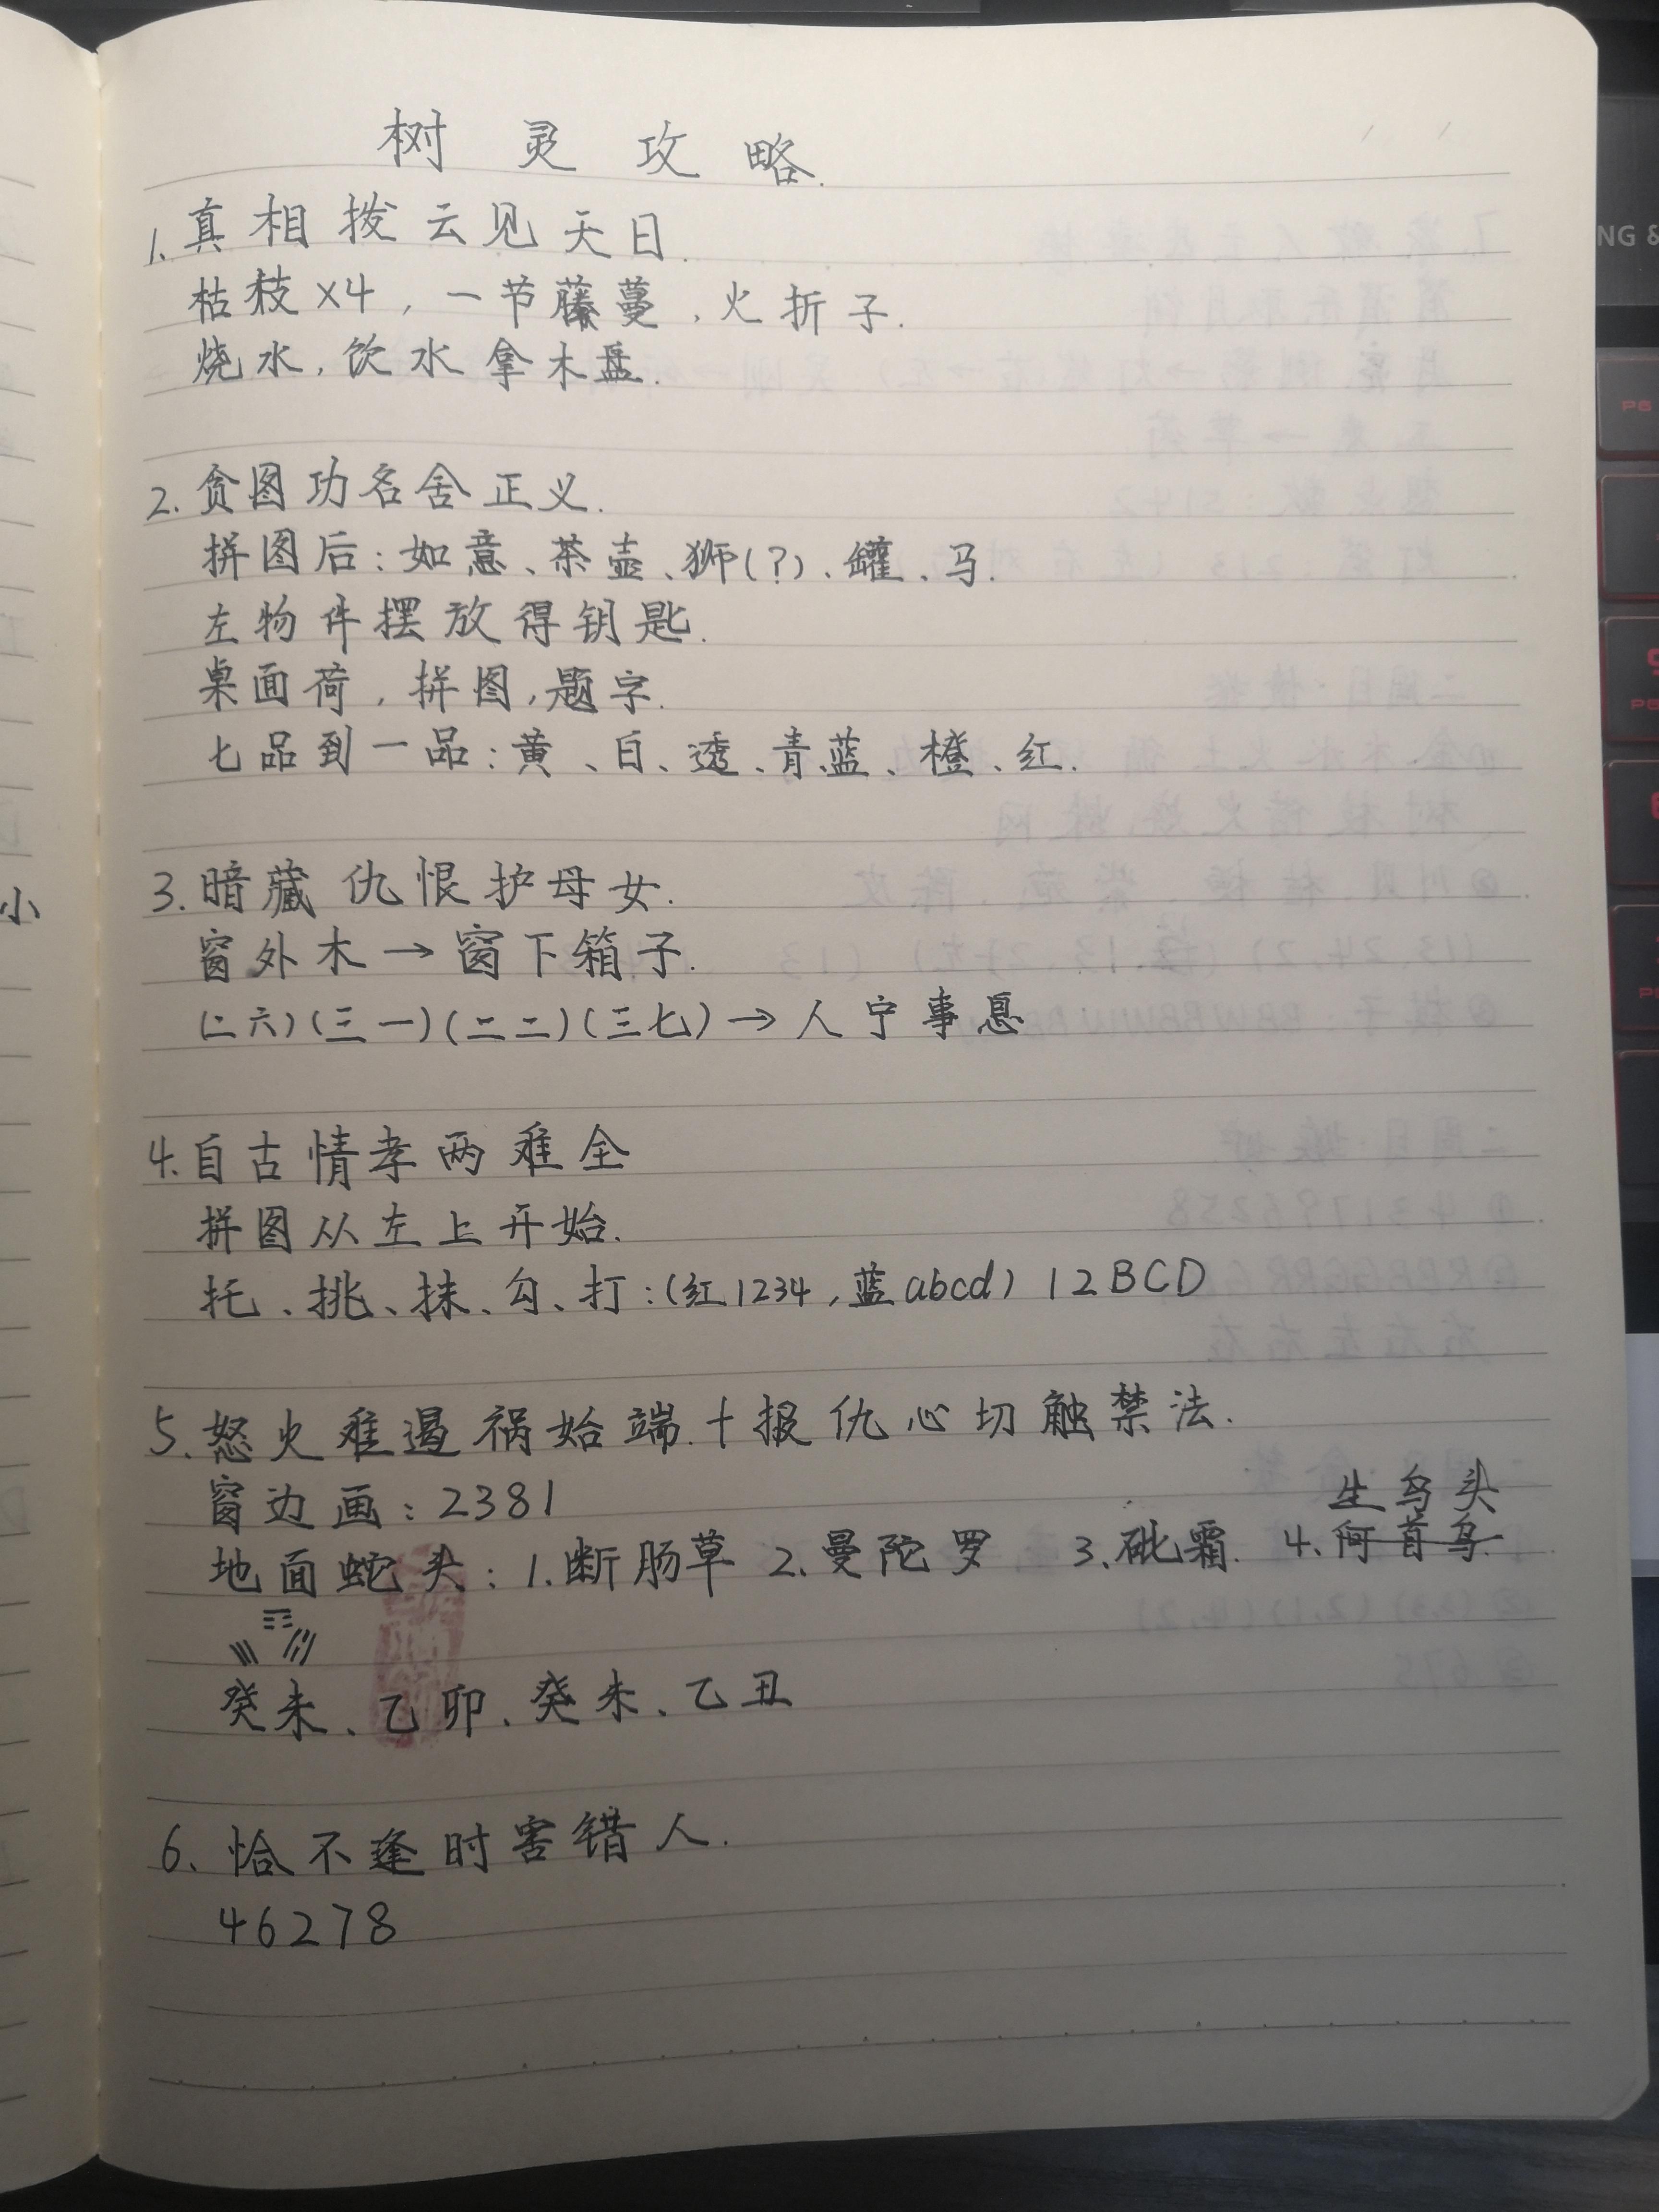 树灵攻略.
1.真相拨云见天日.
枯枝×4,一节藤蔓,火折子.
烧水,饮水拿木盘.
2.贪图功名舍正义.
拼图后:如意、茶壶、狮(?)、罐、马.
左物件摆放得钥匙.
桌面荷,拼图,题字.
七品到一品:黄、白、透、青、蓝、橙、红.
3.暗藏仇恨护母女.
窗外木→窗下箱子.
(二六)(三一)(二二)(三七)→人宁事息
4.自古情孝两难全
拼图从左上开始.
托、挑、抹、勾、打:(红1234,蓝abcd) 12BCD
5.怒火难遏祸始端.+报仇心切触禁法.
窗边画:2381
生乌头
地面蛇头:1.断肠草 2.曼陀罗 3.砒霜. 4.何首乌.
癸未、乙卯、癸未、乙丑
6.恰不逢时害错人.
46278
小
NG &
P6